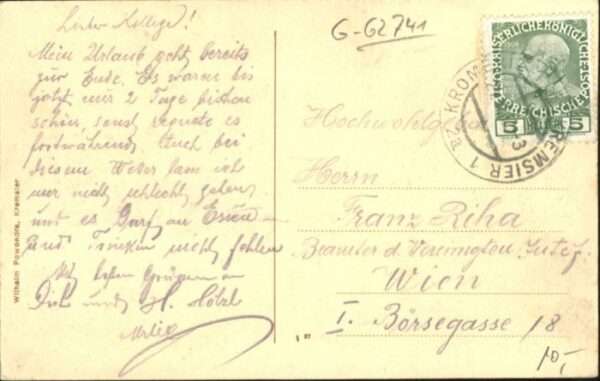 Lieber Kollege!
Mein Urlaub geht bereits
zur Ende. Es waren bis
jetzt nur 2 Tage bischen
schön, sonst regnete es
fortwährend. Auch bei
diesem Wetter kam ich
nur nicht schlecht
und es Darf an Essen
und Trinken nicht fehlen
Mit besten Grüssen an
Dich und H. Hölzl
G-62741
Hochwohlgeboren
Herrn
Franz Riha
Beamter d. Vereinigten
Wien
I. Börsegasse 18
10,-
KREMSIER 1
5 5
Wilhelm Povondra, Kremsier